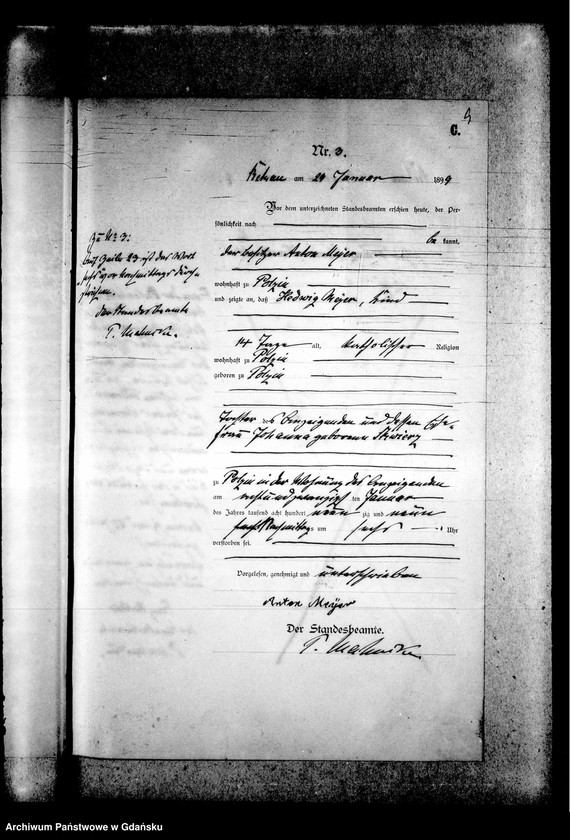 9
C.
Nr. 3.
am 24 Januar 1899
Vor dem unterzeichneten Standesbeamten erschien heute, der Per-
sönlichkeit nach
be kannt,
der Besitzer Anton Meÿer
wohnhaft zu Polzin
und zeigte an, daß Hedwig Meÿer, Kind
14 Tage alt, katholischer Religion
wohnhaft zu Polzin
geboren zu Polzin
Tochter des Anzeigenden und dessen Ehe-
frau Johanna geborenen
zu Polzin in der Wohnung des Anzeigenden
am ten Januar
des Jahres tausend acht hundert neun zig und neun
sechs Nachmittags um sechs Uhr
verstorben sei.
Vorgelesen, genehmigt und unterschrieben
Anton Meÿer
Der Standesbeamte.
Zu No 3:
Auf Zeile 23 ist das Wort
"sechs" vor Nachmittags durch-
strichen.
Der Standesbeamte
Archiwum Państwowe w Gdańsku